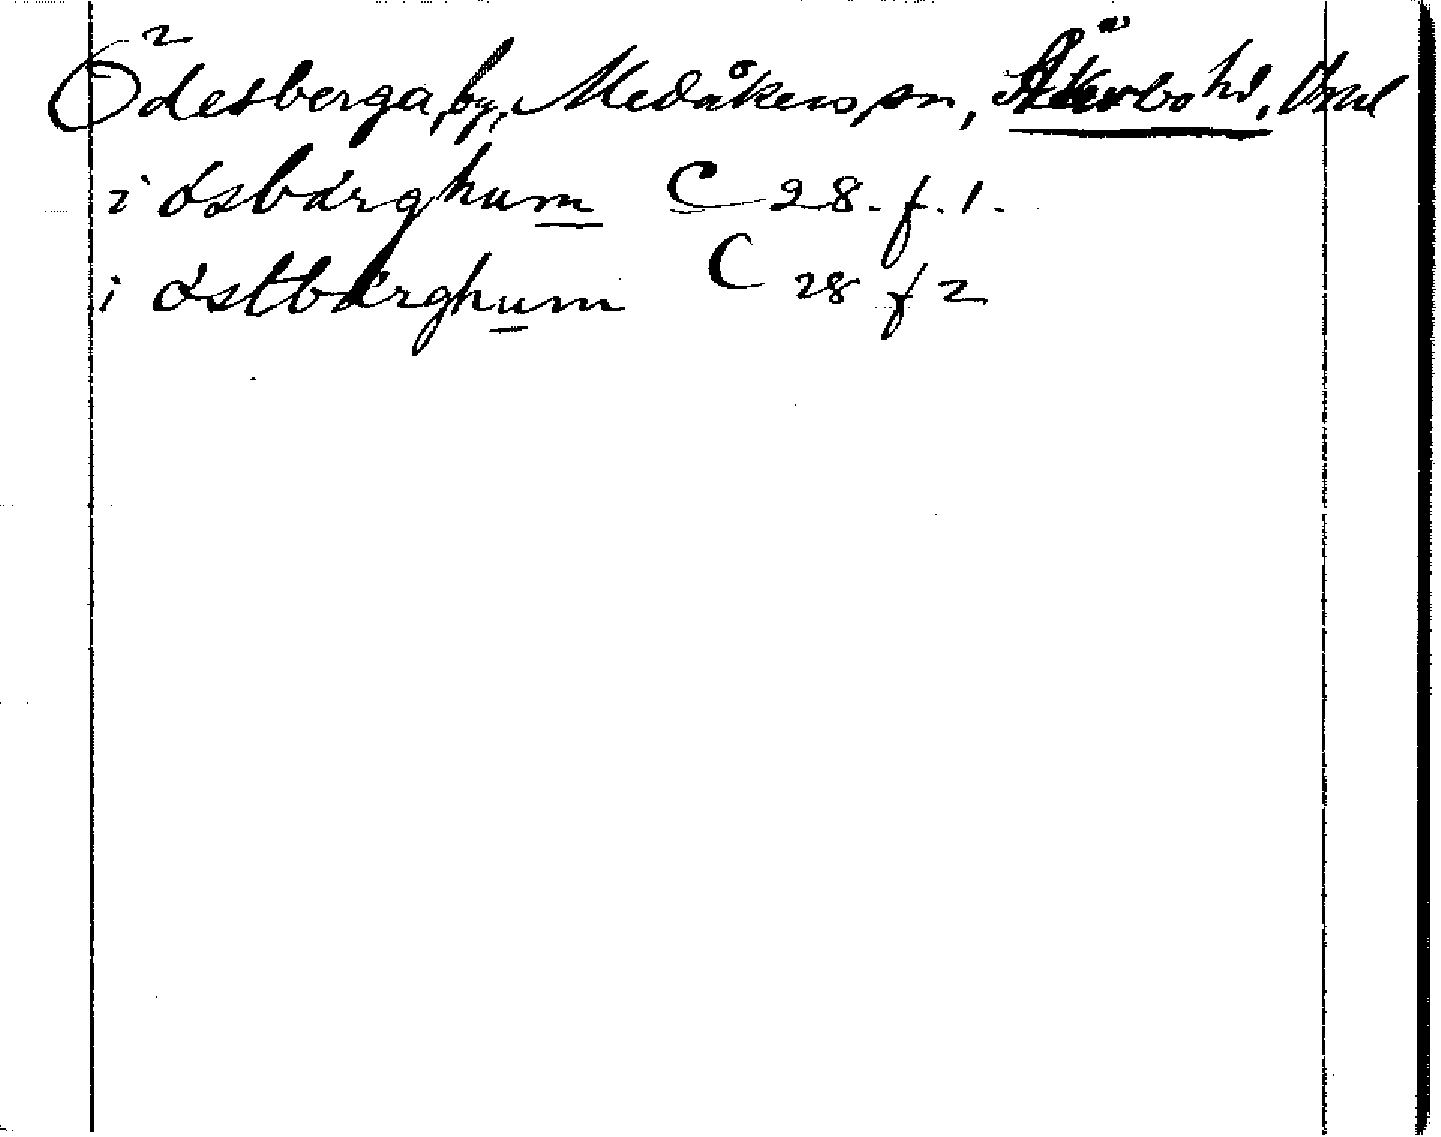 Ödesberga, by, Medåkers sn, Åkerbo hd, Vsml
i ösbärghum C 28. f. 1.
i östbärghum C 28 f 2